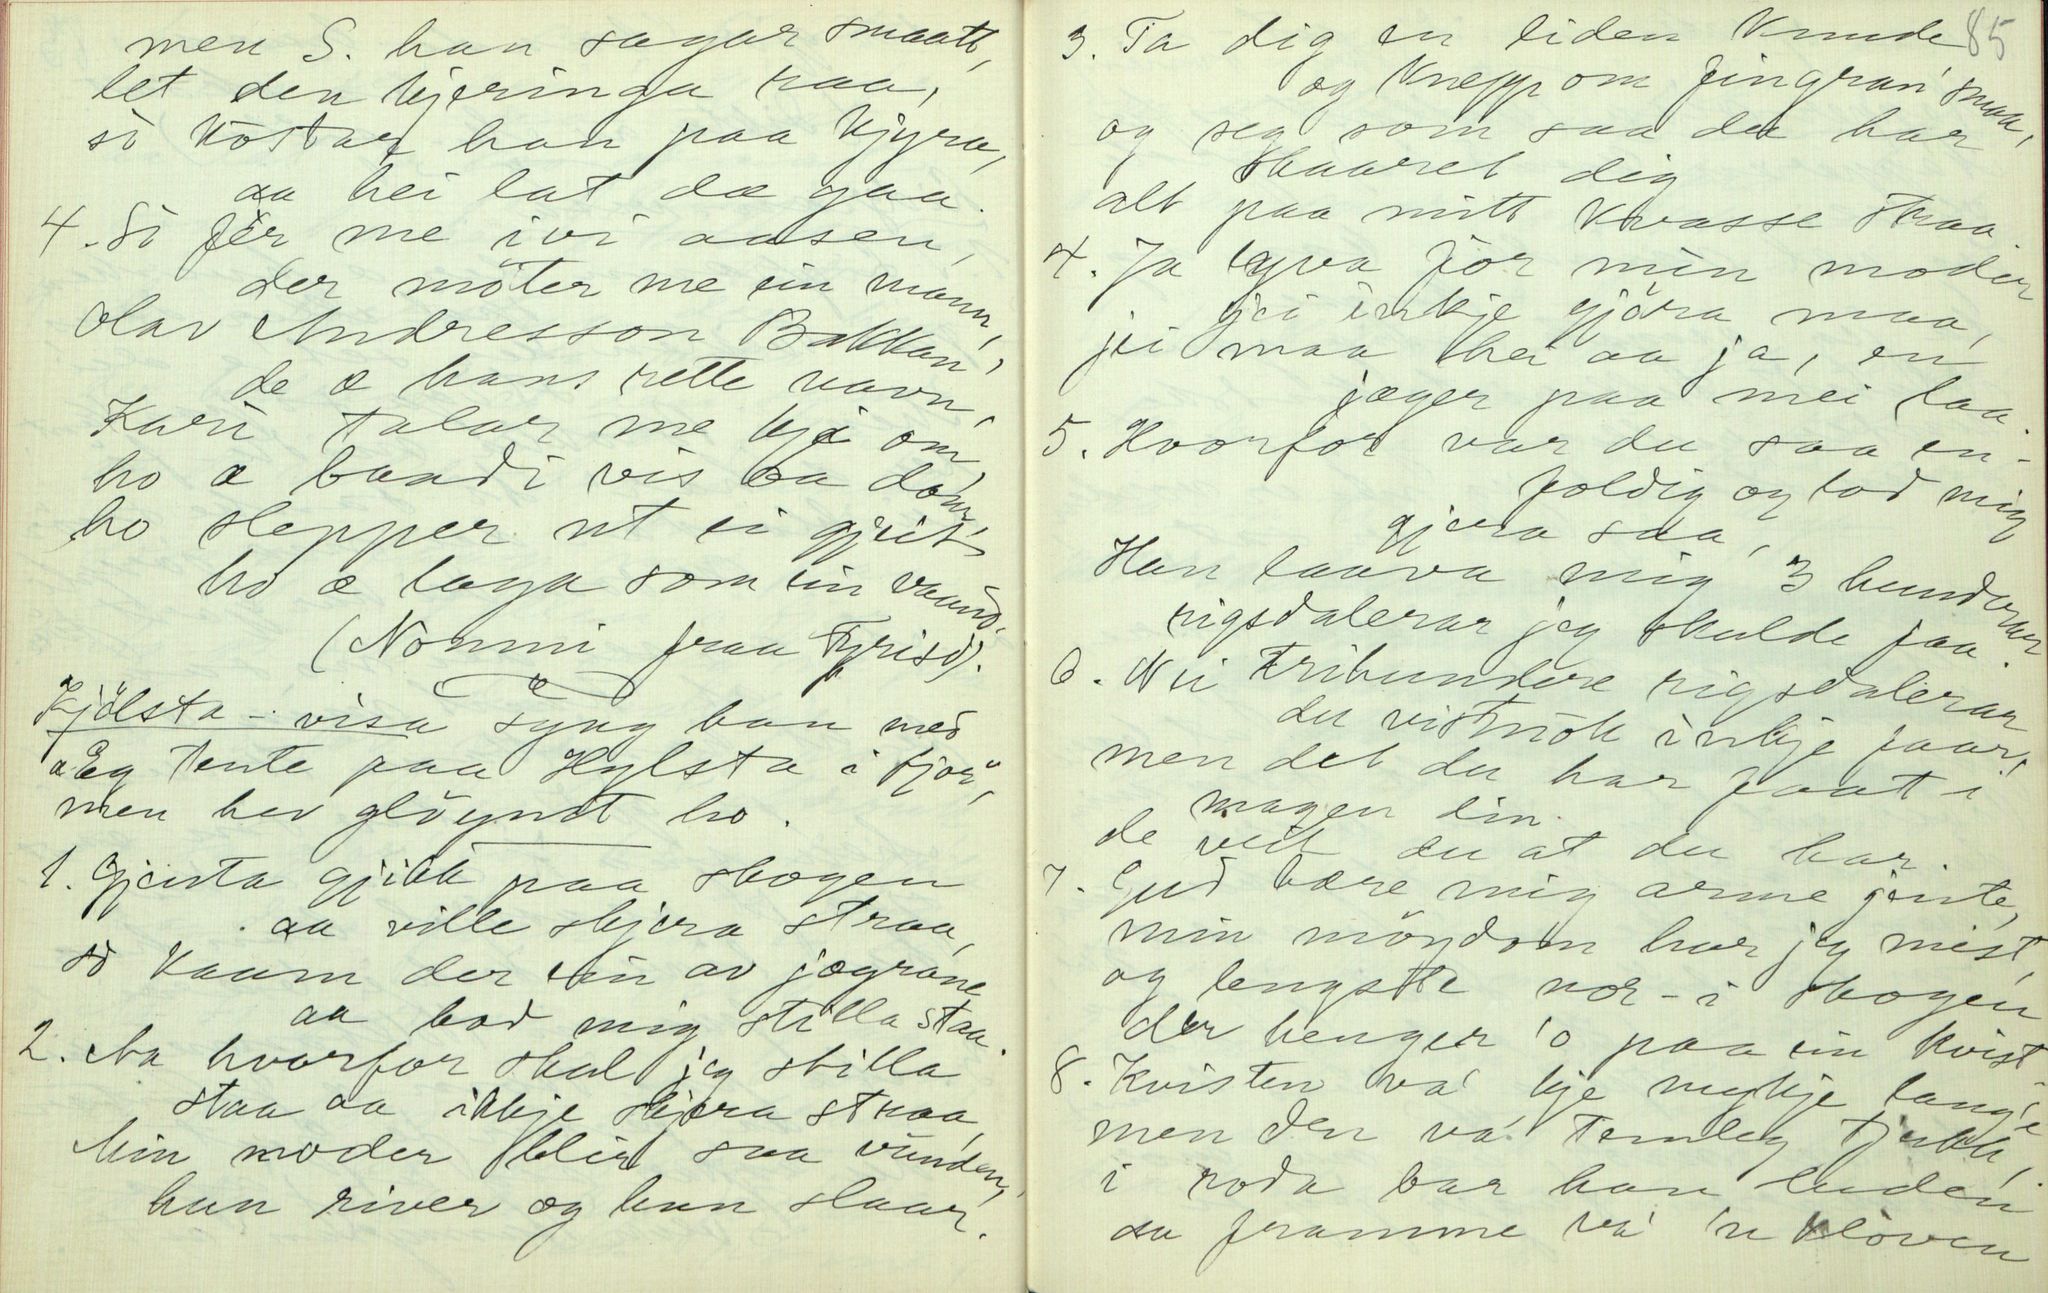 men S. han sagar smaatt,
let den kjeringa raa,
so kostar han paa kjyra,
aa hei lat dæ gaa.
4. So fér me ivi aasen,
der möter me ein mann,
Olav Andresson Bakkan',
de æ hans rette navn,
Kari talar me kje om,
ho æ baadi vis aa dom
ho slepper ut ei gjeit
ho æ laga som ein vaand.
(Nommi fraa Fyrisd).
Kjölsta-visa syng han med
"Eg tente paa Kylsta i fjor",
men hev glöymt ho.
1. Gjenta gjikk paa skogen
aa ville skjera straa,
so kaam der ein av jegrane
aa bad mig stilla staa.
2. Aa hvorfor skal jeg stilla
staa aa ikkje skjera straa,
Min moder blir saa vunden,
hun river og hun slaar.
85
3. Ta dig en liden knude
og knepp om fingran' smaa,
og seg som saa du har
skaaret dig
alt paa mitt kvasse straa.
4. Ja lyva for min moder
jei inkje gjöra maa,
jei maa hei aa ja, en
jæger paa mei laa.
5. Hvorfor var du saa en-
foldig og lod mig
gjera saa,
Han laava mig 3 hundrar
rigsdalerar jeg skulde faa.
6. Nei trihundre rigsdalerar
du vistnok inkje faar,
men det du har faat i
magen din
de veit du at du har.
7. Gud bære mig arme jente,
min möydom har jeg mist,
og lengste nor-i skogen
der henger 'o paa ein kvist
8. Kvisten va' kje mykje lang'e
men den va' temleg tjukk,
i roda var han luden
aa framme va' 'n kloven